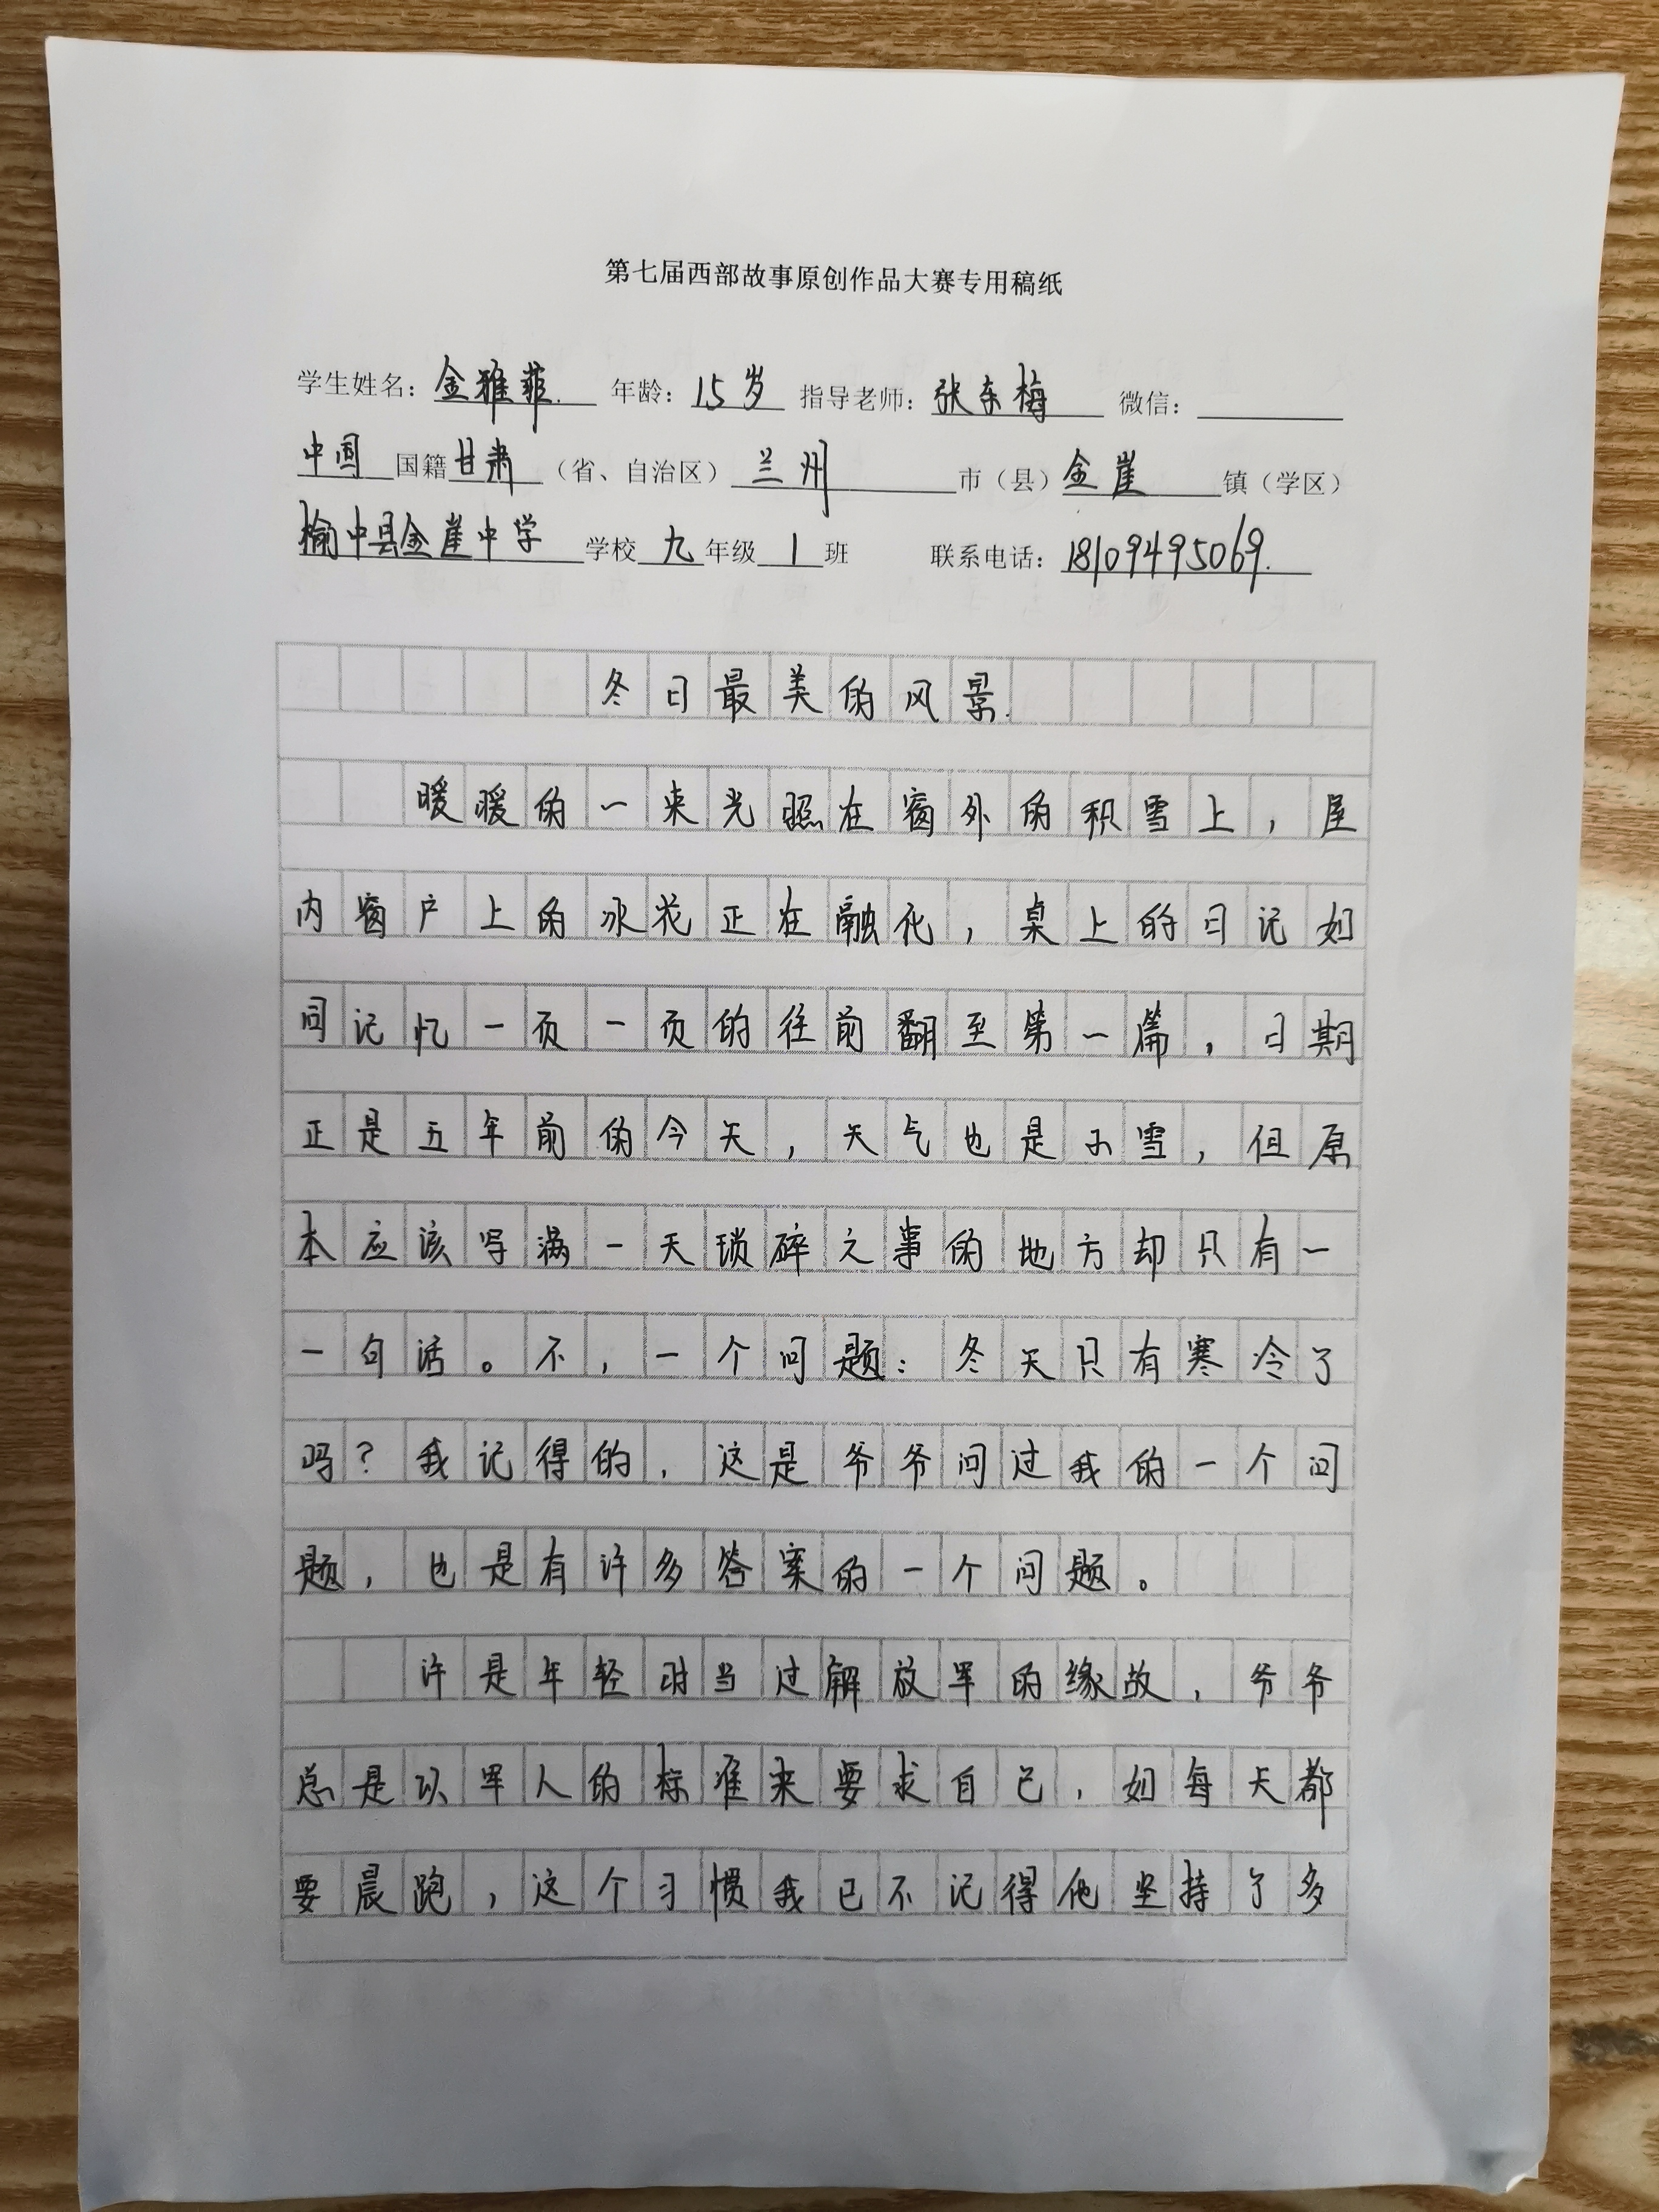 第七届西部故事原创作品大赛专用稿纸
学生姓名：金雅菲 年龄：15岁 指导老师：张东梅 微信：
中国 国籍 甘肃（省、自治区）兰州 市（县）金崖 镇（学区）
榆中县金崖中学 学校 九 年级 1 班 联系电话：18109495069.
冬日最美的风景.
暖暖的一束光照在窗外的积雪上，屋
内窗户上的冰花正在融化，桌上的日记如
同记忆一页一页的往前翻至第一篇，日期
正是五年前的今天，天气也是小雪，但原
本应该写满一天琐碎之事的地方却只有一
一句话。不，一个问题：冬天只有寒冷了
吗？我记得的，这是爷爷问过我的一个问
题，也是有许多答案的一个问题。
许是年轻时当过解放军的缘故，爷爷
总是以军人的标准来要求自己，如每天都
要晨跑，这个习惯我已不记得他坚持了多